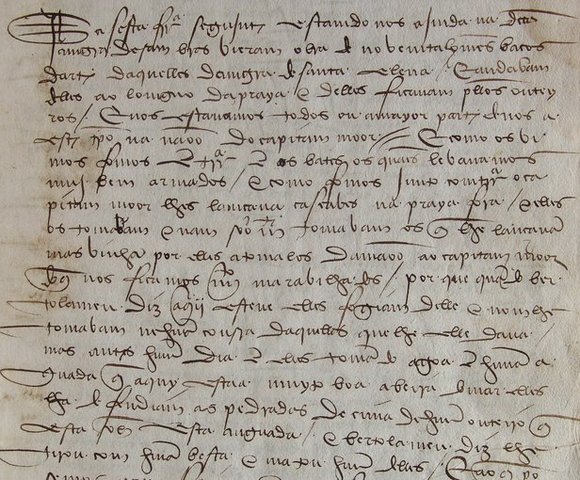 A sesta frª segujnte estando nos ajnda na dita
amgra de sam bras vieram obra de noventa homes baços
darte daquelles damgra de santa elena / E andabam
delles ao longuo da praya E delles ficavam pllos outey
ros / E nos estavamos todos ou amayor parte de nos a
este tpo na naoo do capitam moor / E como os vi
mos fomos e trrª e os batees os quaes levavamos
muj bem armados / E como fomos junto com trrª o ca
pitam moor lhes lancava cascabes na praya fora / E elles
os tomabam E nam soo tomabam os q lhe lancavam
mas vinha por elles a tomalos da maoo ao capitam moor
do q nos ficamos marabilhados / por que quando ber
tolameu diz aquj esteve elles fogiam delle e nom lhe
tomabam nehua coussa daquellas que lhe elle dava
mas antes huum dia e elles tomando agoa e huma a
guada q aquy estaa muyto boa a beira do mar elles
lha defendiam as pedradas de cima de huum outeiro q
esta sobre esta auguada / E bertolameu diz lhe
tirou com huma besta e matou huum delles /